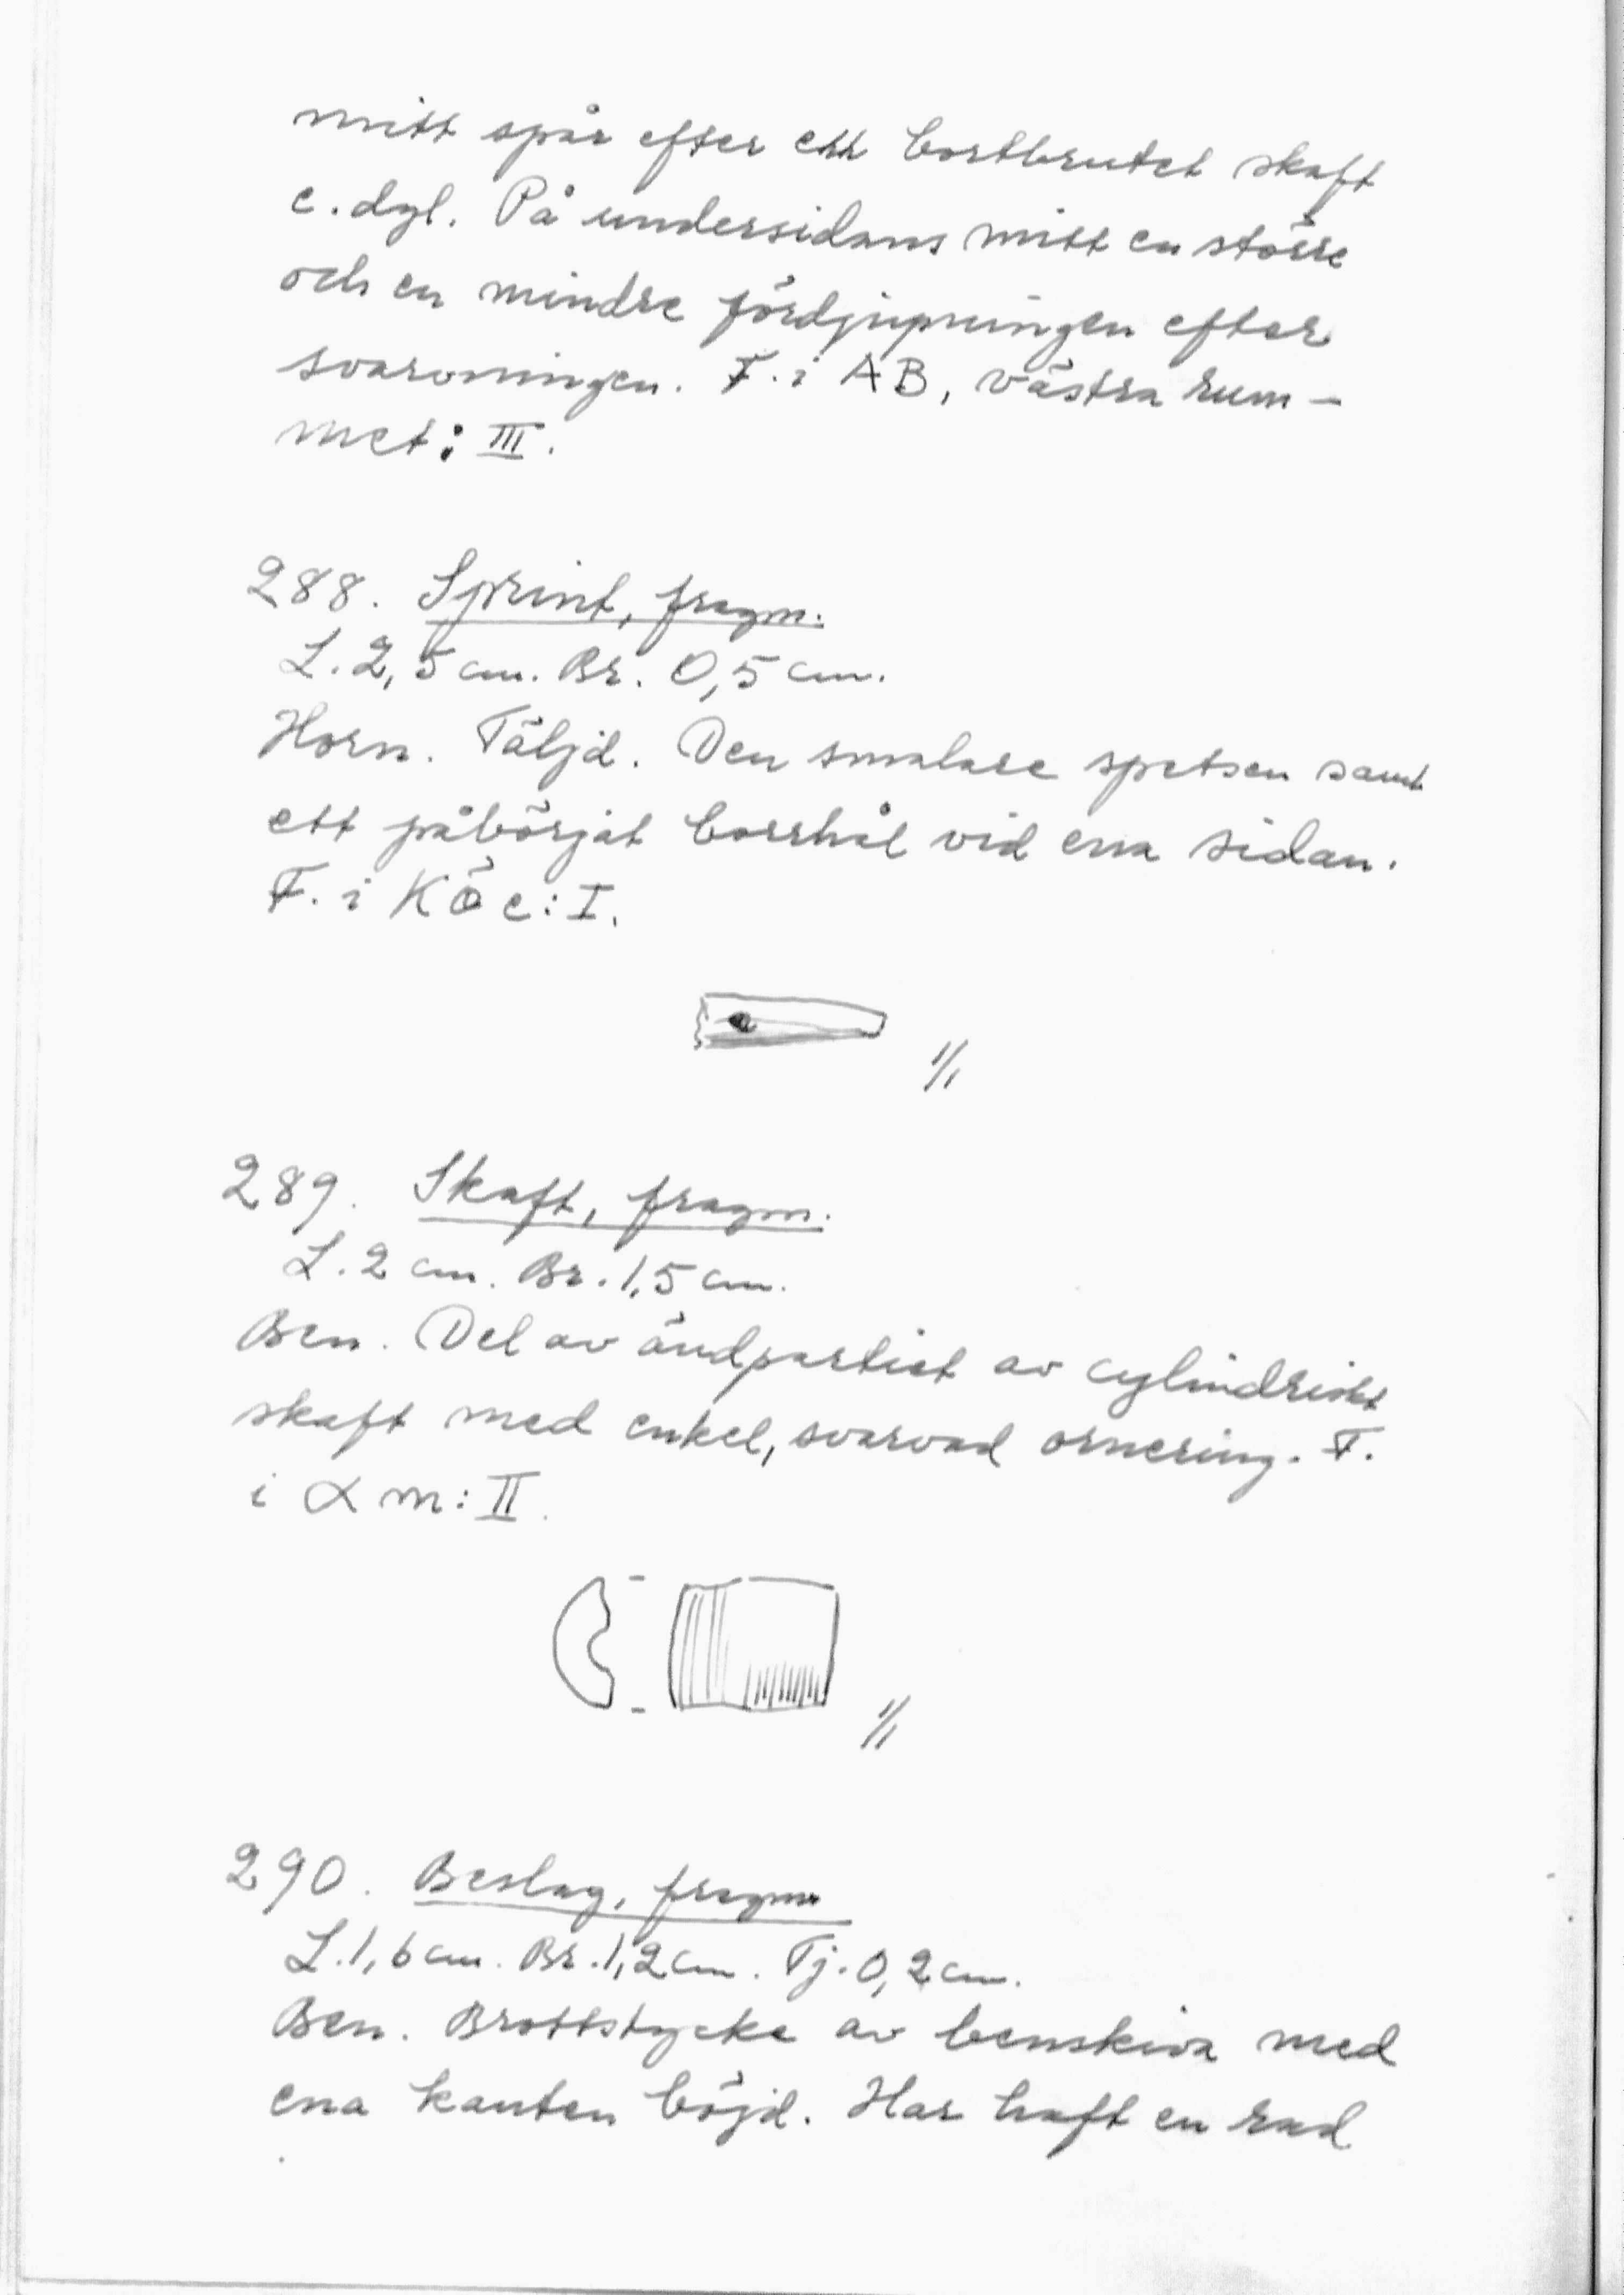 mitt spår efter ett bortbrutet skaft
e.dyl. På undersidans mitt en större
och en mindre fördjupningen efter
svarvningen. F. i AB, västra rum-
met: III.
288. Sprint, fragm.
L. 2,5 cm. Br. 0,5 cm.
Horn. Täljd. Den smalare spetsen samt
ett påbörjat borrhål vid ena sidan.
F. i KÖ c: I.
1/1
289. Skaft, fragm.
L. 2 cm. Br. 1,5 cm.
Ben. Del av ändpartiet av cylindriskt
skaft med enkel, svarvad ornering. F.
i α m: II.
1/1
290. Beslag, fragm
L. 1,6 cm. Br. 1,2 cm. Tj. 0,2 cm.
Ben. Brottstycke av benskiva med
ena kanten böjd. Har haft en rad